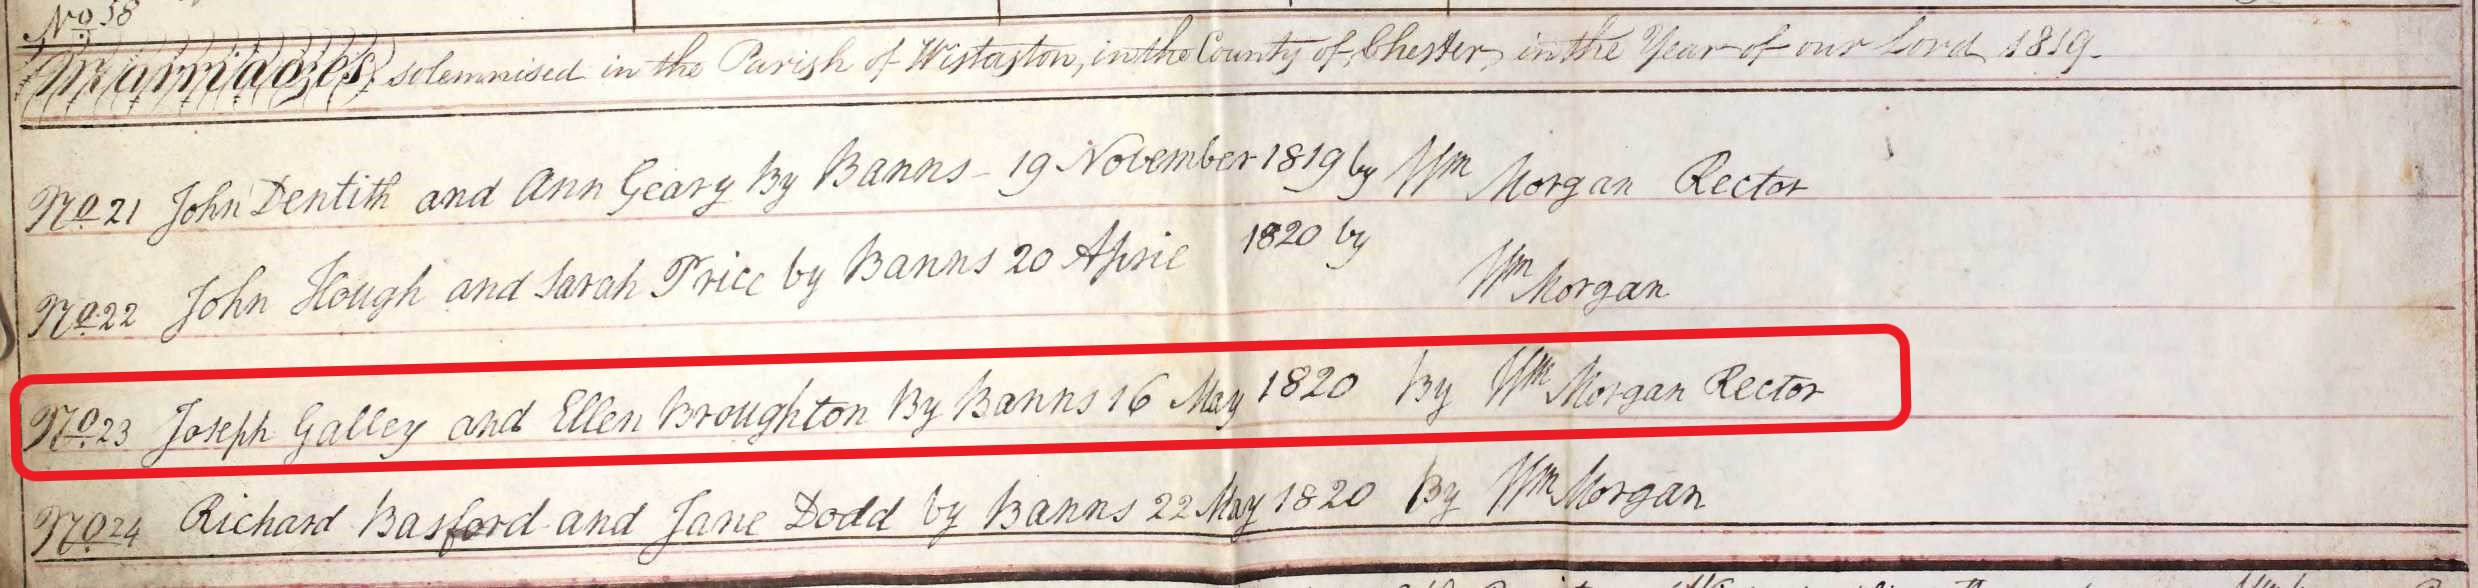 No 58
Marriages, solemnised in the Parish of Wistaston, in the County of Chester, in the Year of our Lord 1819-
No 21 John Dentith and Ann Geary By Banns - 19 November 1819 by Wm Morgan Rector
No 22 John Hough and Sarah Price by Banns 20 April 1820 by Wm Morgan
No 23 Joseph Galley and Ellen Broughton By Banns 16 May 1820 By Wm Morgan Rector
No 24 Richard Basford and Jane Dodd by Banns 22 May 1820 By Wm Morgan